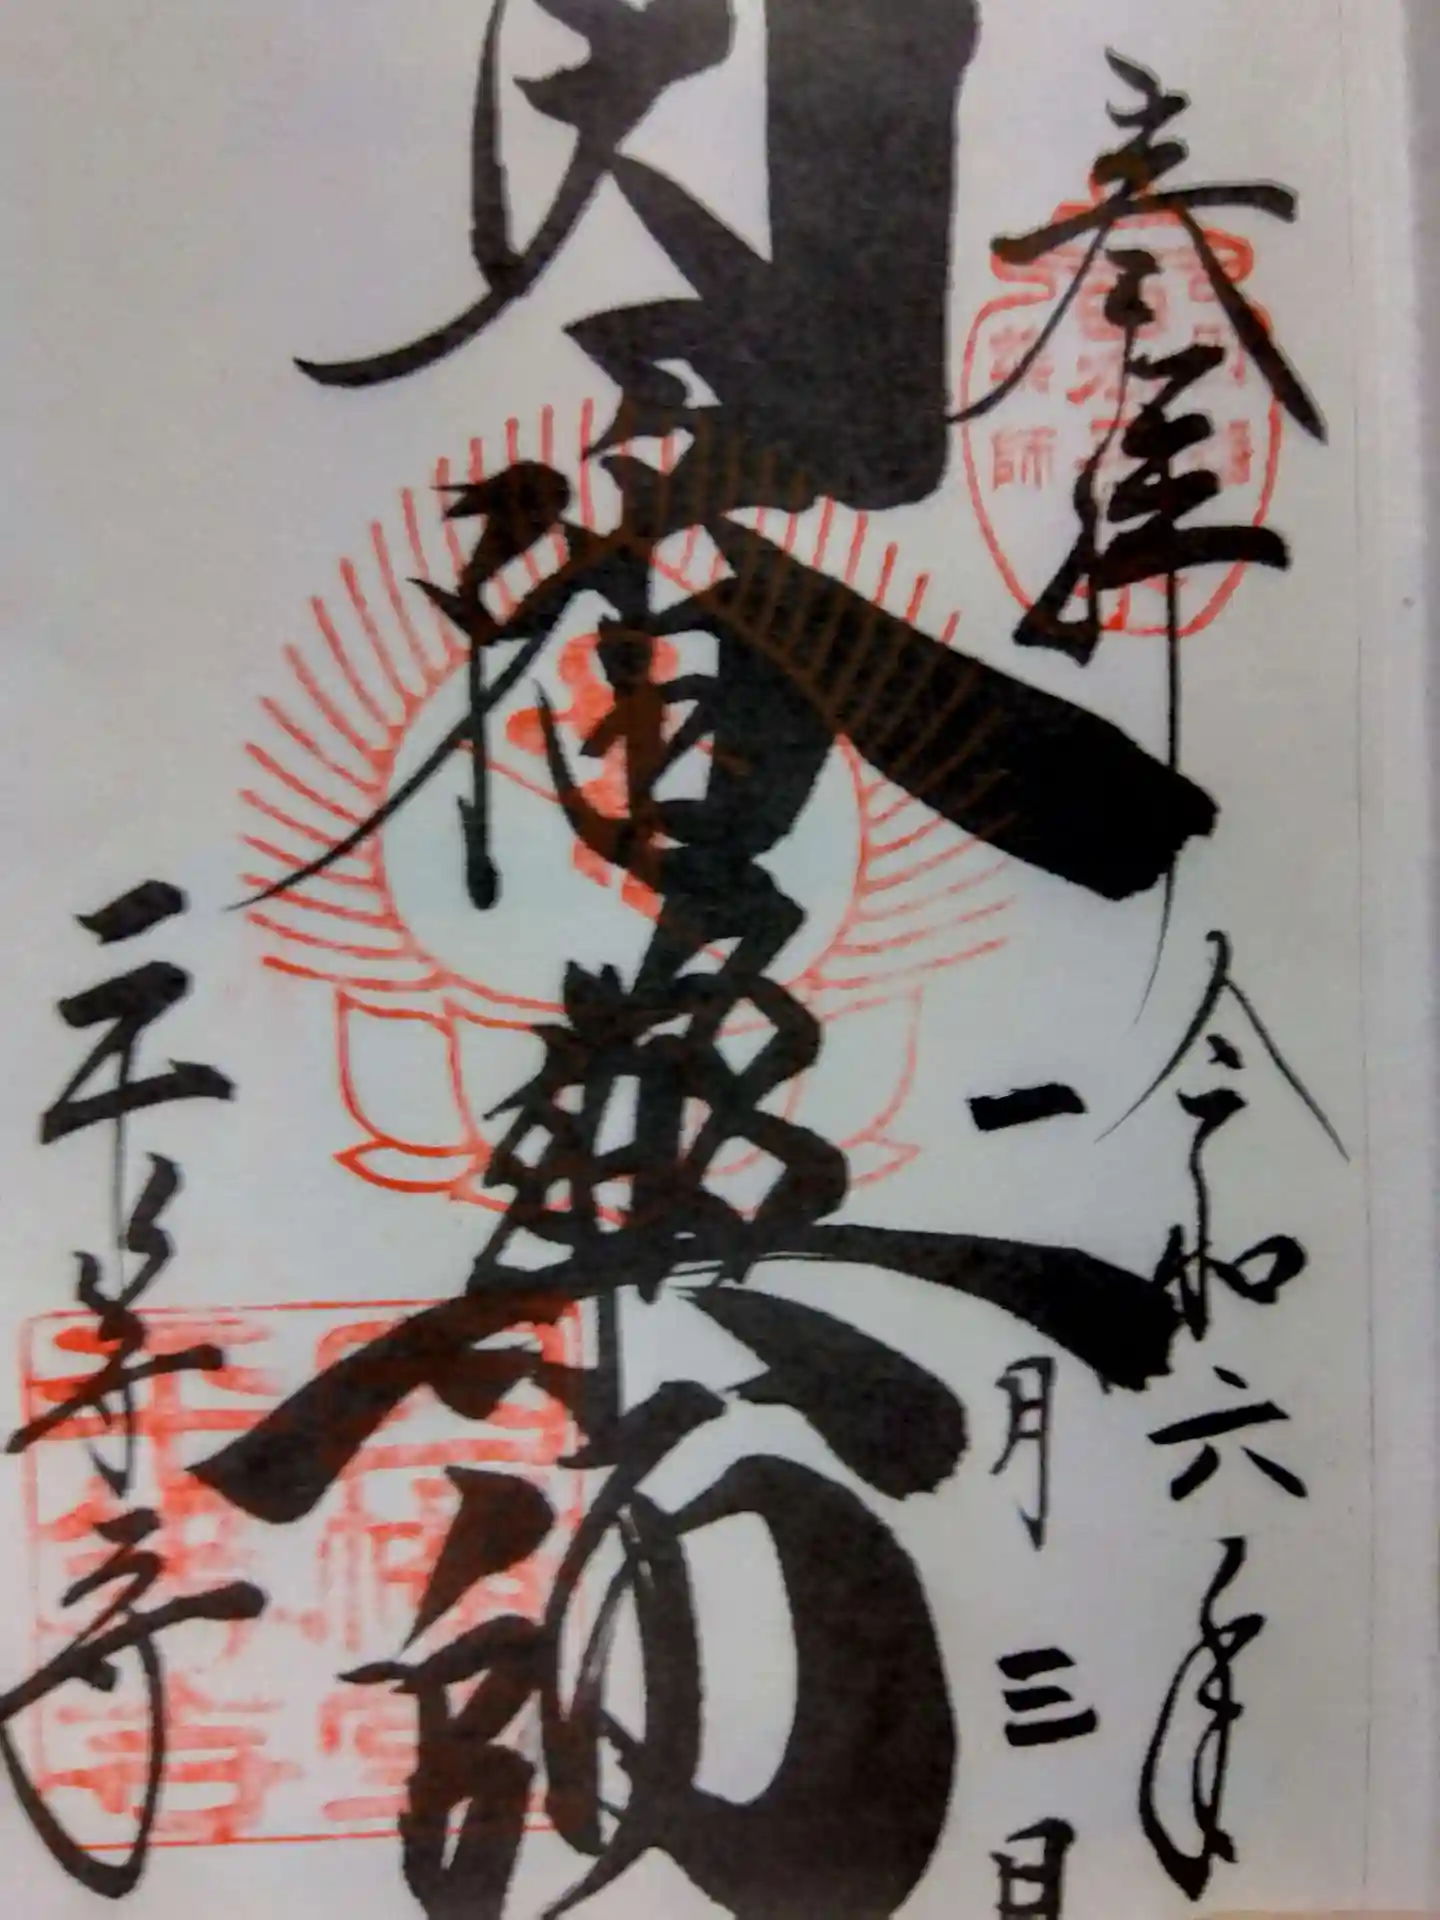 奉拝
令和六年
一月三日
因幡薬師
平等寺
薬師
因幡堂
平等寺